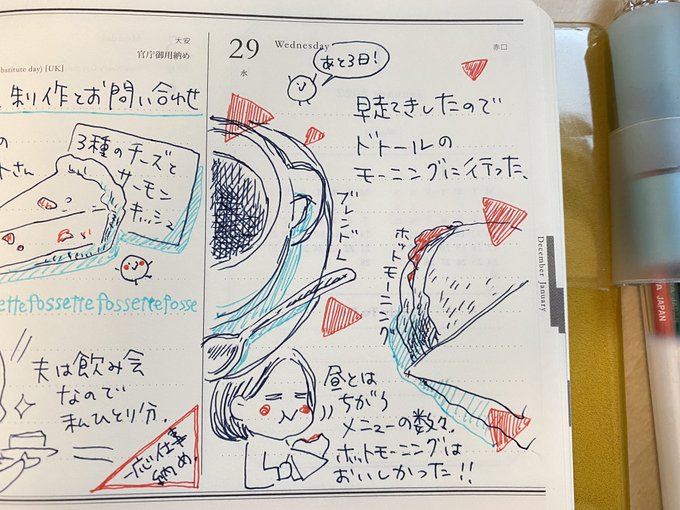 大安
官庁御用納め
bstitute day) [UK]
制作とお問い合わせ
の
トさん
3種のチーズと
サーモン
キッシュ
etteFossetteFossetteFosse
夫は飲み会
なので
私ひとり分。
一応仕事
納め。
29 Wednesday
水
赤口
あと3日!
早起きしたので
ドトールの
モーニングに行った。
ブレンドL
ホットモーニング
昼とは
ちがう
メニューの数々。
ホットモーニングは
おいしかった!!
December January
JAPAN